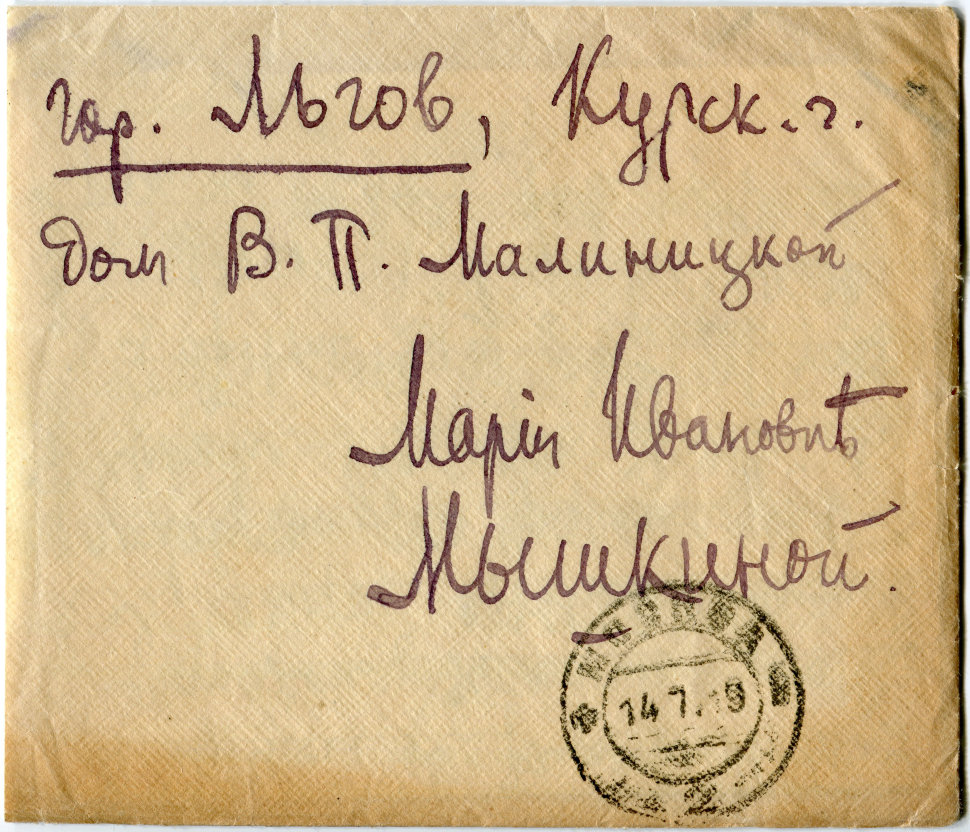 гор. Льгов, Курск. г.
Дом В. П. Малиницкой
Маріи Ивановнѣ
Мышкиной.
МОСКВА
14 7. 18
2